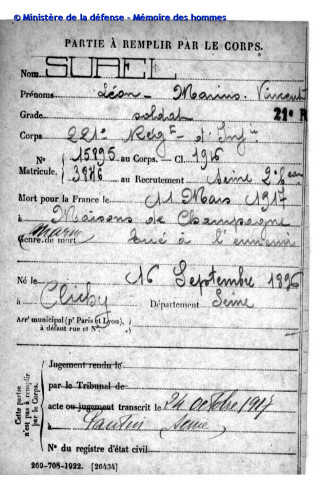 © Ministère de la défense - Mémoire des hommes
PARTIE À REMPLIR PAR LE CORPS.
Nom SUREL
Prénoms Léon Marius Vincent
Grade soldat
21e R
Corps 221e Régt d'Infie
N° 15895 au Corps. — Cl. 1916
Matricule. 3876 au Recrutement Seine 2e Bau
Mort pour la France le 11 Mars 1917
à Maisons de Champagne
Marne
Genre de mort tué à l'ennemi
Né le 16 Septembre 1896
à Clichy Département Seine
Arrt municipal (pr Paris et Lyon),
à défaut rue et N°.
Cette partie n'est pas à remplir par le Corps.
Jugement rendu le
par le Tribunal de
acte ou jugement transcrit le 24 octobre 1917
à Pantin Seine
N° du registre d'état civil
269-708-1922. [26434]